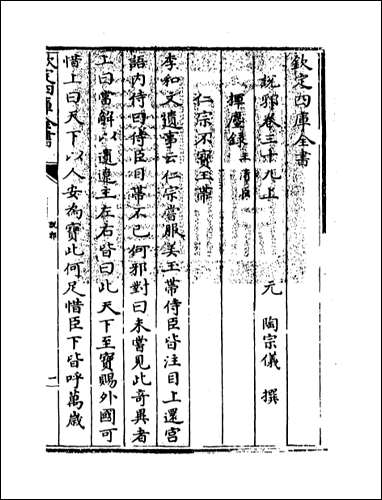 欽定四庫全書
說郛卷三十九上
元 陶宗儀 撰
揮塵錄 王清
仁宗不寶玉帶
李和文遺事云仁宗嘗服美玉帶侍臣皆注目上還宮
語内侍曰侍臣目帶不已何邪對曰未嘗見此奇異者
上曰當解以遺遼主左右皆曰此天下至寶賜外國可
惜上曰天下以人安為寶此何足惜臣下皆呼萬歲
欽定四庫全書
說郛